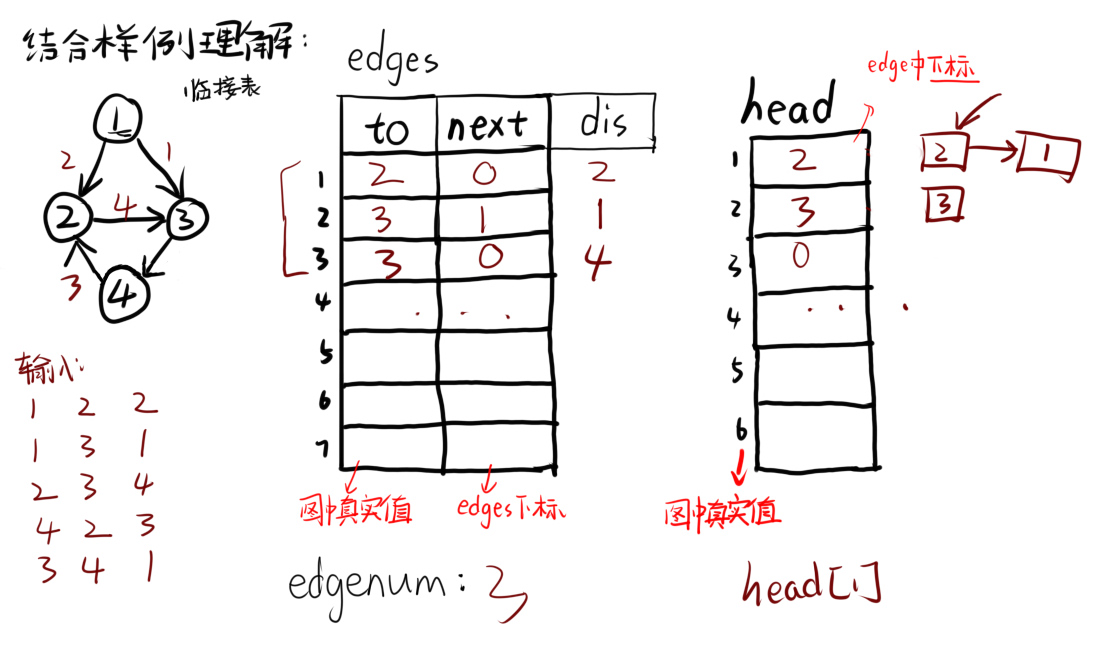 结合样例理解：
临接表
1
2
1
2
4
3
3
4
输入：
1 2 2
1 3 1
2 3 4
4 2 3
3 4 1
edges
to next dis
1 2 0 2
2 3 1 1
3 3 0 4
4 . . .
5
6
7
图中真实值
edges下标
edgenum：3
edge中下标
head
1 2
2 3
3 0
4 . . .
5
6
图中真实值
head[1]
2 1
3